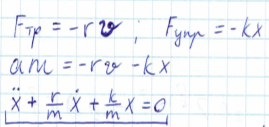 Fтр = -rv ; Fупр = -kx
am = -rv - kx
ẍ + r/m ẋ + k/m x = 0